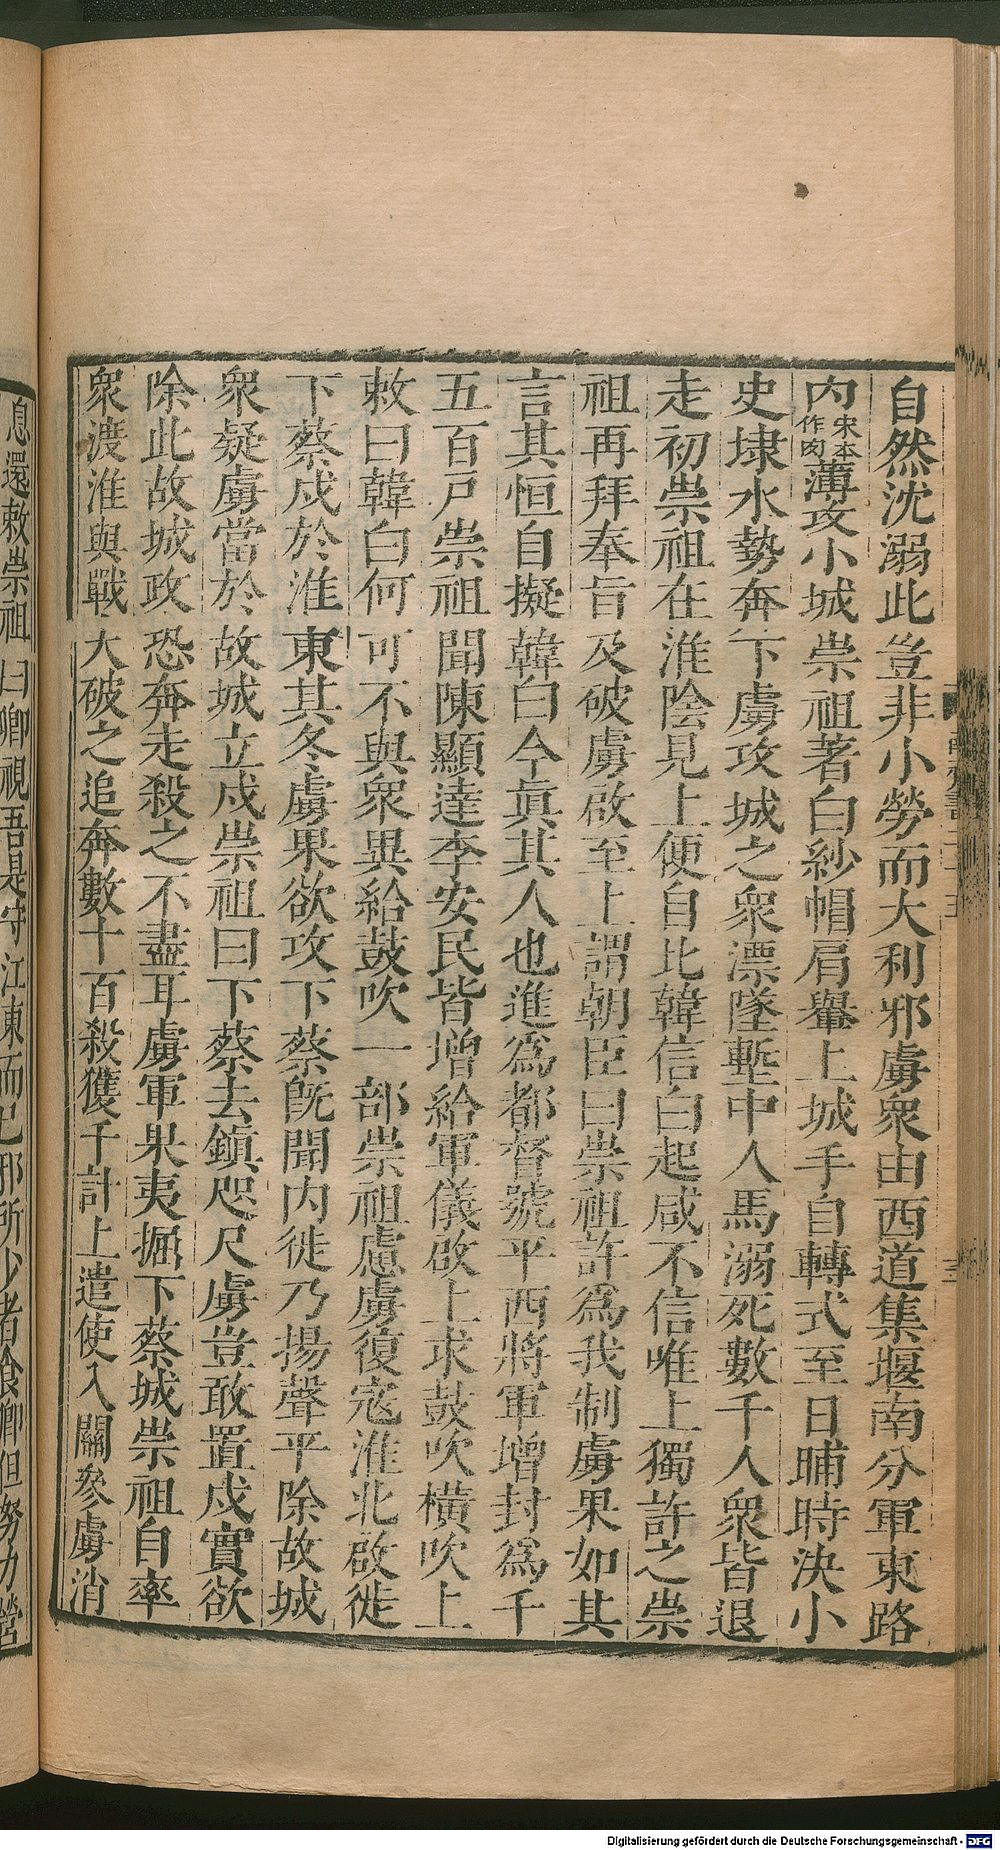 自然沈溺此豈非小勞而大利邪虜衆由西道集堰南分軍東路
内宋本作肉薄攻小城崇祖著白紗帽肩轝上城手自轉式至日晡時決小
史埭水勢奔下虜攻城之衆漂墜塹中人馬溺死數千人衆皆退
走初崇祖在淮陰見上便自比韓信白起咸不信唯上獨許之崇
祖再拜奉旨及破虜啟至上謂朝臣曰崇祖許爲我制虜果如其
言其恒自擬韓白今眞其人也進爲都督號平西將軍增封爲千
五百戸崇祖聞陳顯達李安民皆增給軍儀啟上求鼓吹橫吹上
敕曰韓白何可不與衆異給鼓吹一部崇祖慮虜復寇淮北啟徙
下蔡戍於淮東其冬虜果欲攻下蔡旣聞内徙乃揚聲平除故城
衆疑虜當於故城立戍崇祖曰下蔡去鎮咫尺虜豈敢置戍實欲
除此故城政恐奔走殺之不盡耳虜軍果夷掘下蔡城崇祖自率
衆渡淮與戰大破之追奔數十百殺獲千計上遣使入關參虜消
息還敕崇祖曰卿視吾是守江東而已邪所少者食卿但努力營
Digitalisierung gefördert durch die Deutsche Forschungsgemeinschaft - DFG